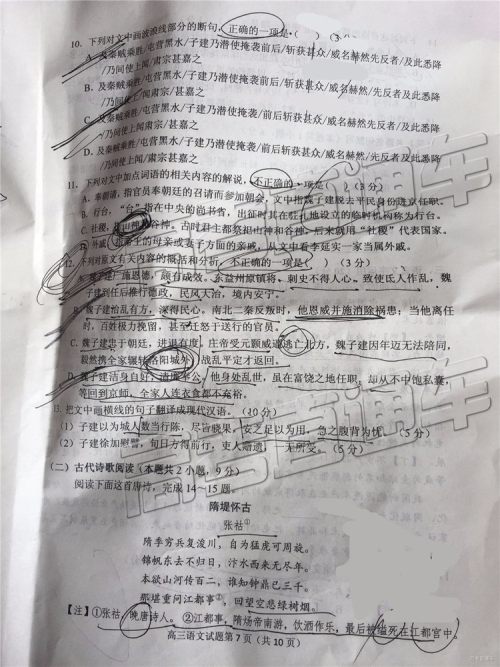 10. 下列对文中画波浪线部分的断句,正确的一项是( )(3
A. 及秦贼乘胜/屯营黑水/子建乃潜使掩袭前后/斩获甚众/威名赫然先反者/及此悉降
/乃间使上闻/肃宗甚嘉之
B. 及秦贼乘胜/屯营黑水/子建乃潜使掩袭/前后斩获甚众/威名赫然/先反者及此悉降
/乃间使上闻肃宗/甚嘉之
C. 及秦贼乘胜/屯营黑水/子建乃潜使掩袭/前后斩获甚众/威名赫然/先反者及此悉降
/乃间使上闻/肃宗甚嘉之
D. 及秦贼乘胜/屯营黑水/子建乃潜使掩袭前后/斩获甚众/威名赫然先反者/及此悉降
/乃间使上闻/肃宗甚嘉之
11. 下列对文中加点词语的相关内容的解说,不正确的一项是( )(3分)
A. 奉朝请,指官员奉朝廷的召请而参加朝会,文中指魏子建脱去平民身份进京任职。
B. 行台,“台”指在中央的尚书省,出征时其在驻扎地设立的临时机构称为行台。
C. 社稷,山神和谷神。古时君主都祭祖山神和谷神,后来就用“社稷”代表国家。
D. 外戚,指帝王的母亲或妻子方面的亲戚,从文中看李延实一家当属外戚。
12. 下列对原文有关内容的概括和分析,不正确的一项是( )(3分)
A. 魏子建广施恩德,颇有成效。东益州原镇将、刺史不得人心,致使氐人作乱,魏
子建到任后推行德政,民风大治,境内安宁。
B. 魏子建治乱有方,深得民心。南北二秦反叛时,他恩威并施消除祸患;当他离任
时,百姓极力挽留,甚至迁怒于送行的官员。
C. 魏子建忠于朝廷,进退有度。庄帝受元颢威逼逃亡北方,魏子建因年迈无法陪同,
毅然携全家辗转洛阳城外,战乱平定才返回。
D. 魏子建洁身自好,清廉奉公。他身处乱世,虽在富饶之地任职,却从不中饱私囊,
等回到京师,全家人连衣食都不充裕。
13. 把文中画横线的句子翻译成现代汉语。(10分)
(1)子建以为城人数当行陈,尽皆骁果,安之足以为用,急之腹背为忧。(5分)
(2)子建徐加慰譬,旬日方得前行,吏人赠遗,一无所受。(5分)
(二)古代诗歌阅读(本题共2小题,9分)
阅读下面这首唐诗,完成14~15题。
隋堤怀古
张祜①
隋季穷兵复浚川,自为猛虎可周旋。
锦帆东去不归日,汴水西来无尽年。
本欲山河传百二,谁知钟鼎已三千。
那堪重问江都事②,回望空悲绿树烟。
【注】①张祜,晚唐诗人。②江都事,隋炀帝南游,饮酒作乐,最后被缢死在江都宫中。
高三语文试题第7页(共10页)